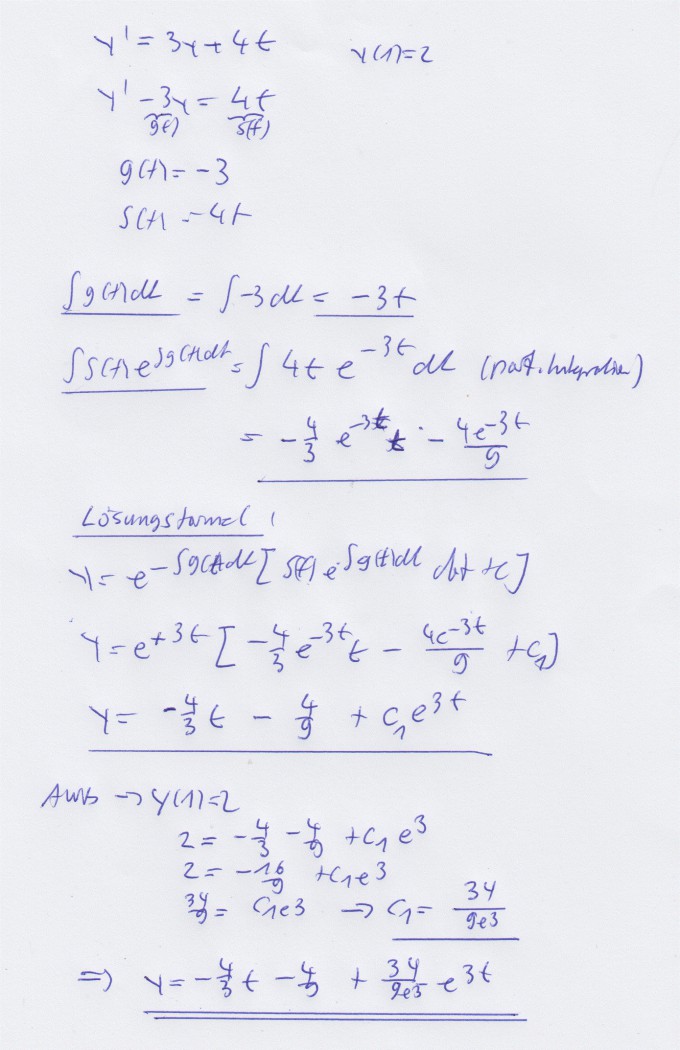 y' = 3y + 4t y(1)=2
y' - 3y = 4t
g(t) s(t)
g(t) = -3
s(t) = 4t
∫g(t)dt = ∫-3 dt = -3t
∫s(t)e^∫g(t)dt = ∫ 4t e^-3t dt (part. Integration)
= -4/3 e^-3t t - 4e^-3t/9
Lösungsformel:
y = e^-∫g(t)dt [ s(t) e^∫g(t)dt dt + c]
y = e^+3t [ -4/3 e^-3t t - 4e^-3t/9 + c₁]
y = -4/3 t - 4/9 + c₁e^3t
AWB → y(1)=2
2 = -4/3 - 4/9 + c₁ e^3
2 = -16/9 + c₁e^3
34/9 = c₁e^3 → c₁ = 34/9e^3
⇒ y = -4/3 t - 4/9 + 34/9e^3 e^3t